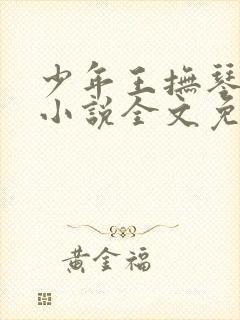 少年王撫琴
小説全文免
黃金福